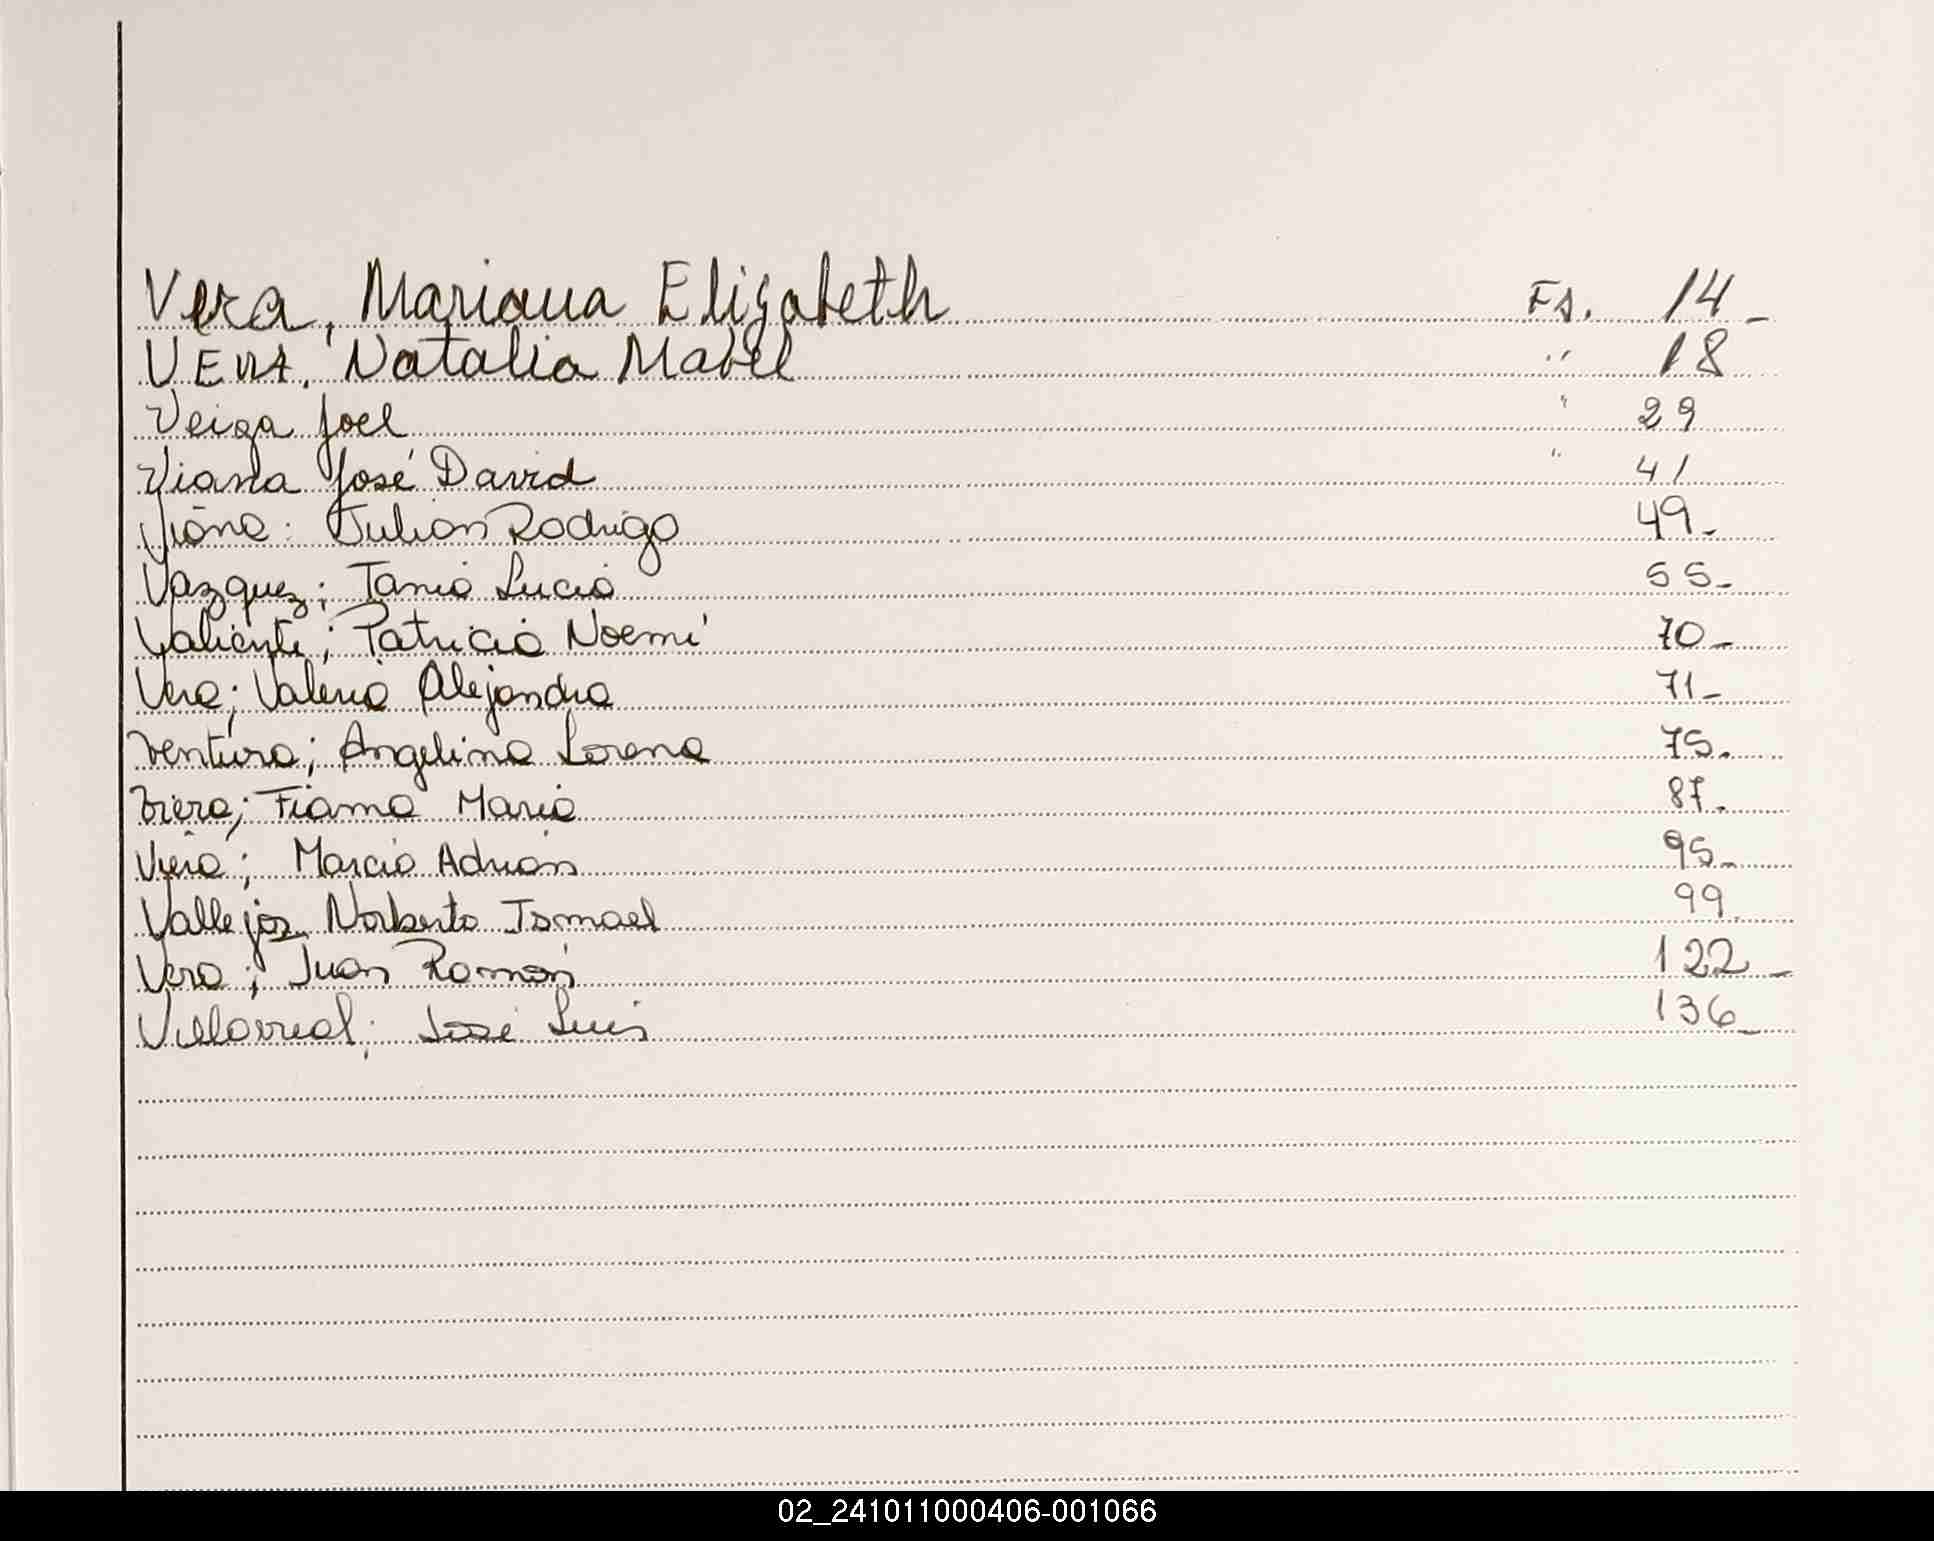 Vera, Mariana Elizabeth Fs. 14_
VERA, Natalia Mabel " 18
Veiga Joel " 29
Viana José David " 41
Viana: Julian Rodrigo 49_
Vazquez; Tania Lucia 55_
Valiente; Patricia Noemí 70_
Vera; Valeria Alejandra 71_
Ventura; Angelina Lorena 75_
Viera; Fiama Maria 87_
Viera; Marcio Adrian 95_
Vallejos, Norberto Ismael 99_
Vera; Juan Ramón 122_
Villarreal; José Luis 136_
02_241011000406-001066